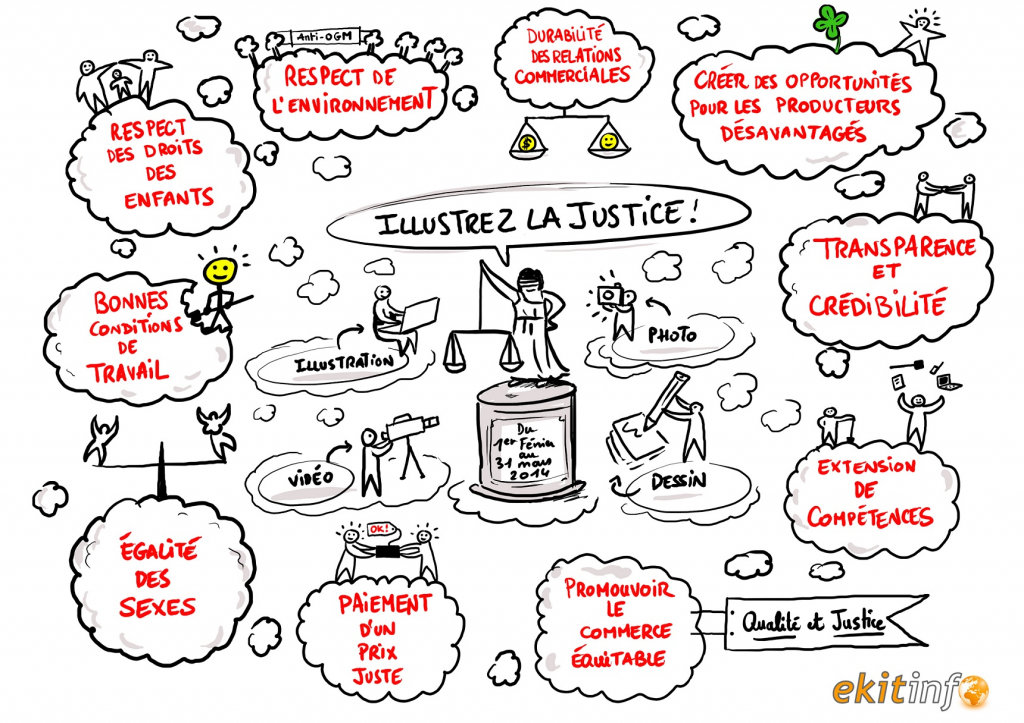 Anti-OGM
RESPECT DE
L'ENVIRONNEMENT
DURABILITÉ
DES RELATIONS
COMMERCIALES
$
CRÉER DES OPPORTUNITÉS
POUR LES PRODUCTEURS
DÉSAVANTAGÉS
RESPECT
DES DROITS
DES
ENFANTS
ILLUSTREZ LA JUSTICE !
TRANSPARENCE
ET
CRÉDIBILITÉ
BONNES
CONDITIONS
DE
TRAVAIL
ILLUSTRATION
PHOTO
VIDÉO
DESSIN
Du
1er Février
au
31 mars
2014
EXTENSION
DE
COMPÉTENCES
ÉGALITÉ
DES
SEXES
OK!
PAIEMENT
D'UN
PRIX
JUSTE
PROMOUVOIR
LE
COMMERCE
ÉQUITABLE
: Qualité et Justice
ekitinfo